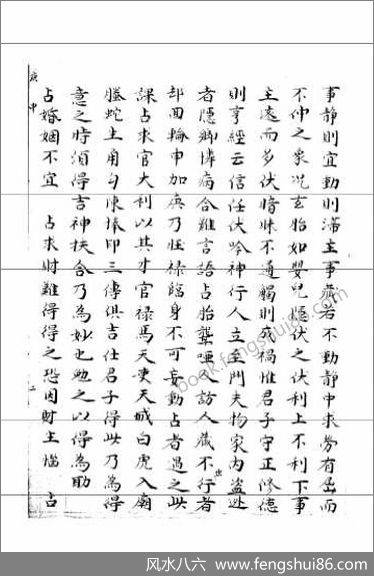 事静則宜動則滞主事藏若不動静中求勞有屈而
不伸之象况玄胎如嬰兒隱伏之伏利上不利下事
主遠而多伏暗昧不通觸則死禍惟君子守正修德
則亨經云信任伏吟神行人立至門失物家内盗逃
者隱鄉憐病合難言語占胎聾啞人訪人藏不出行者
却回輪申加庚乃旺禄臨身不可妄動占者遇之此
課占求官大利以其才官禄馬天吏天城白虎入廟
螣蛇生角勾陳捧印三傳俱吉仕君子得此乃為得
意之時須得吉神扶合乃為妙也勉之以得為助
占婚姻不宜 占求財難得得之恐因財生惱 占
庚申
book.fengshui86.com
风水八六 www.fengshui86.com